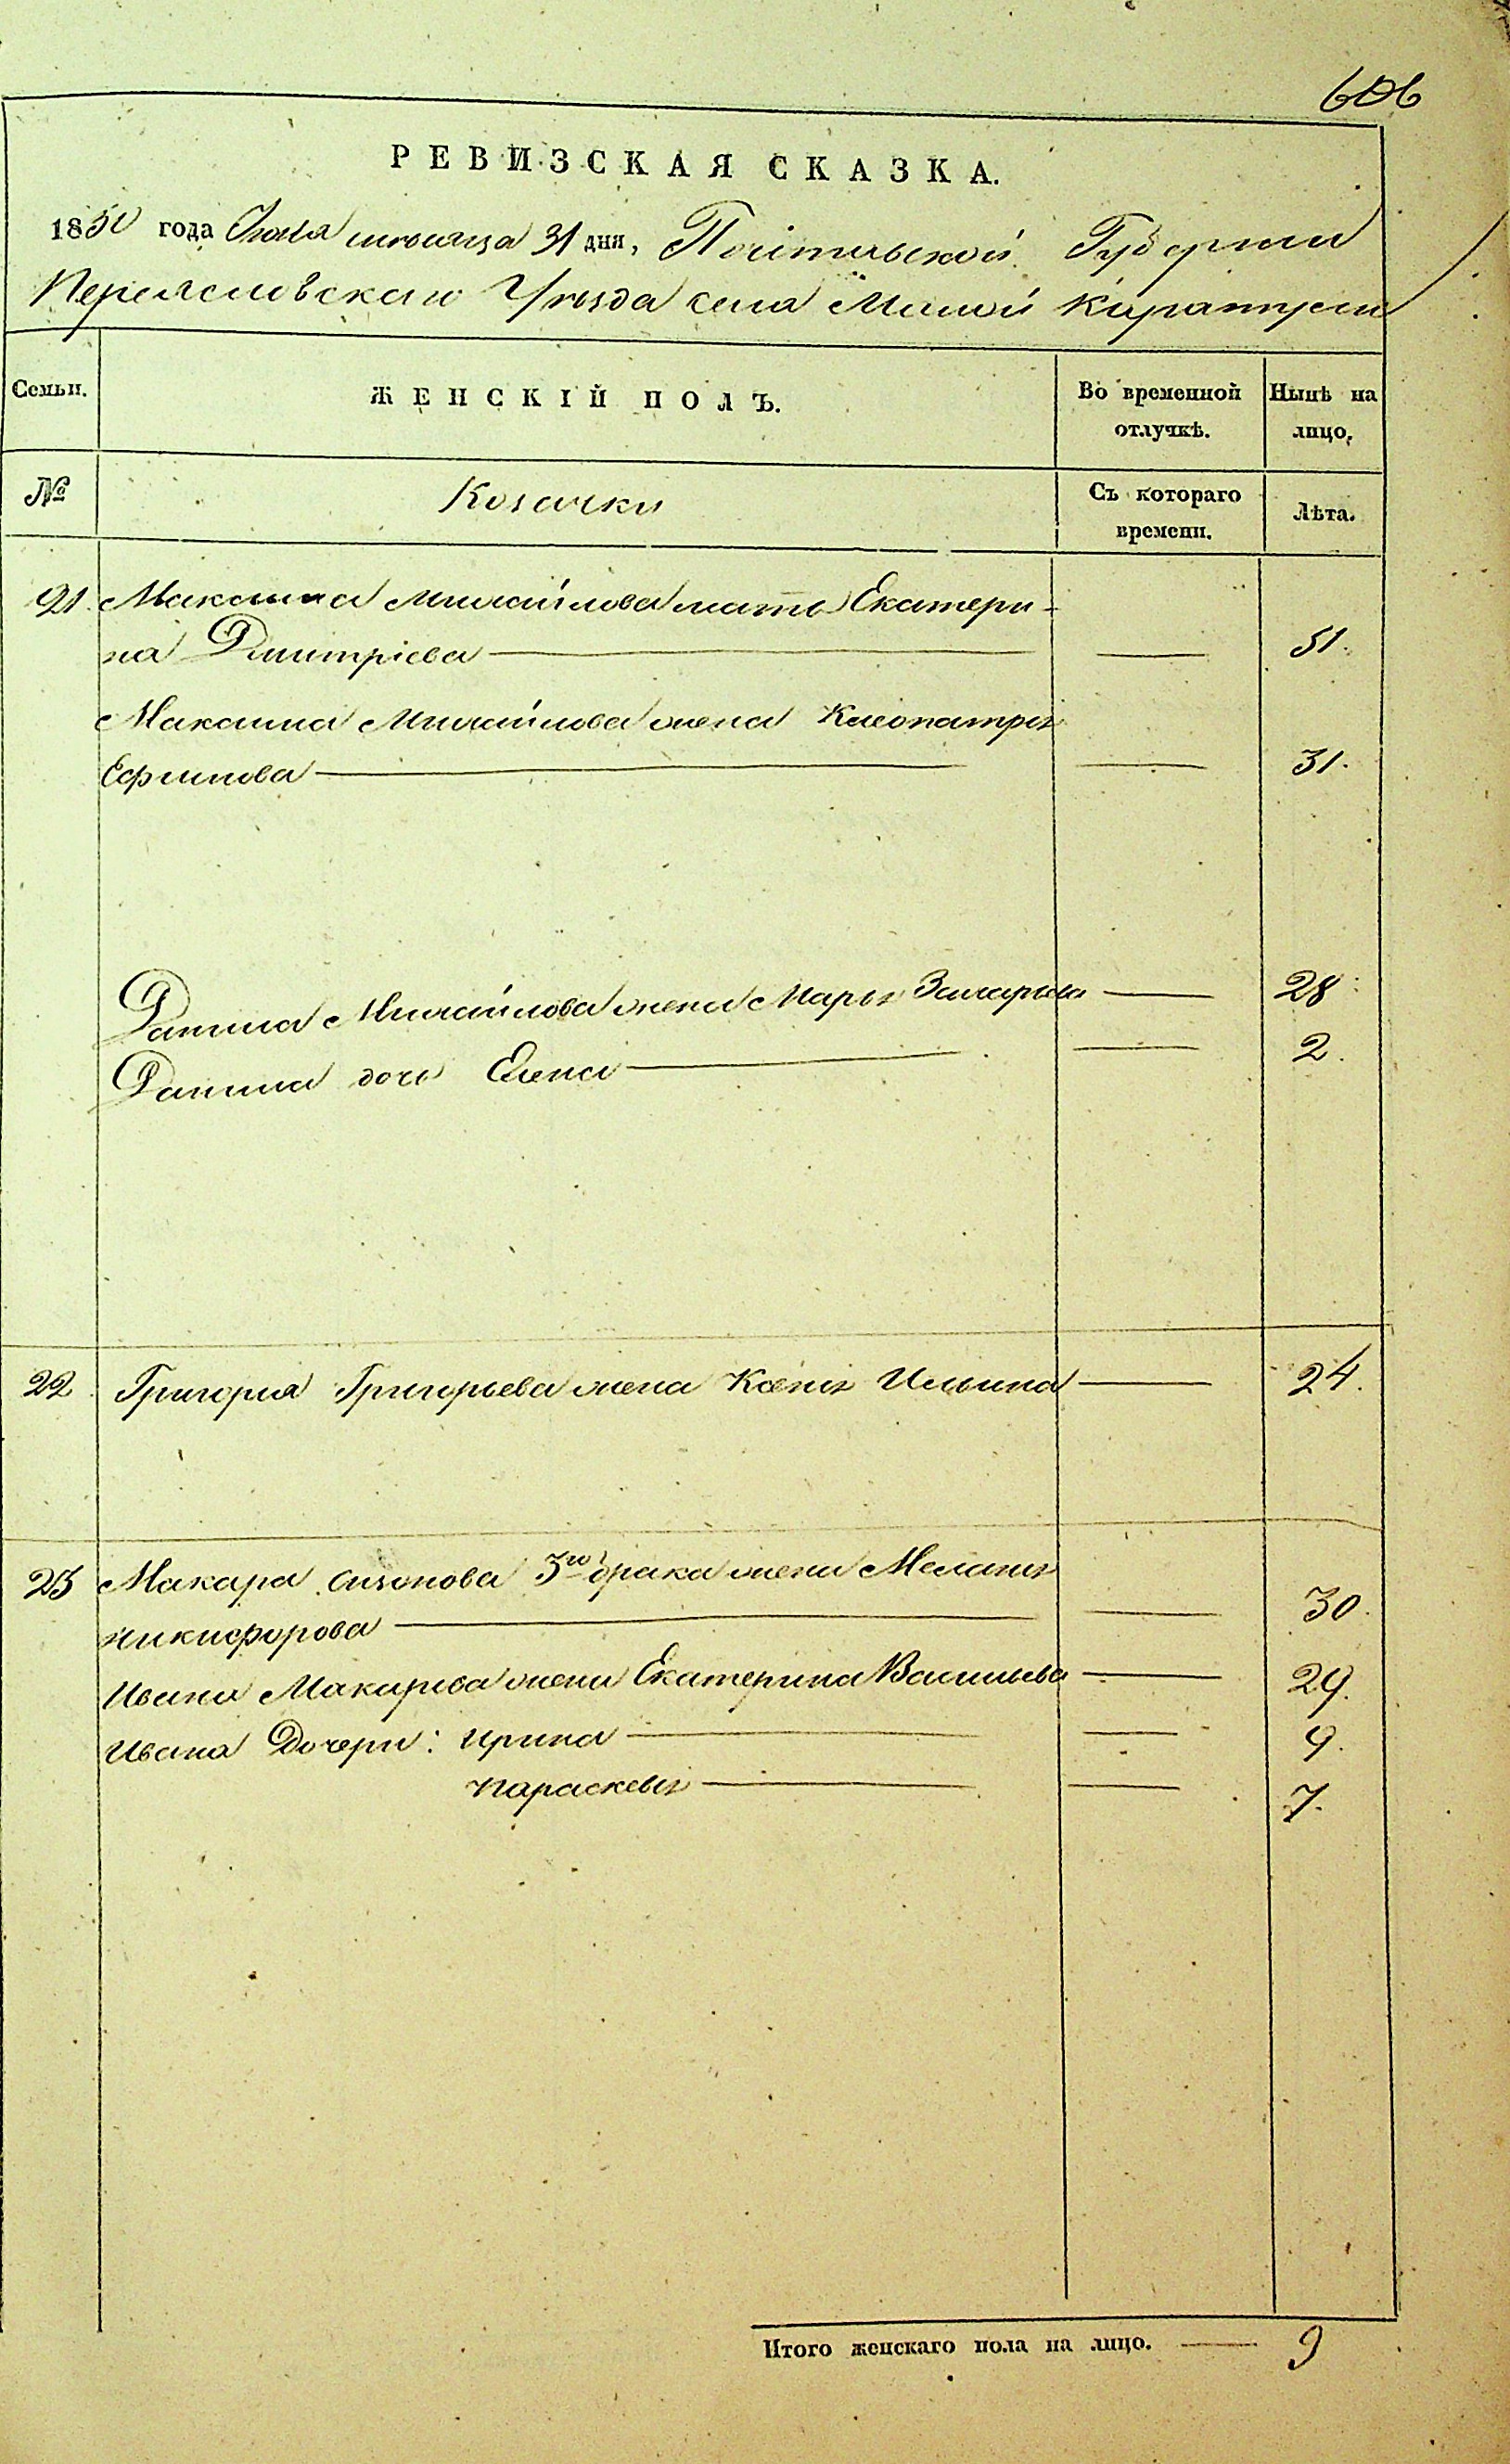 606
РЕВИЗСКАЯ СКАЗКА.
1850 года Июля месяца 31 дня, Полтавской Губернии
Переяславскаго Уѣзда села Малой Каратули
Семьи. ЖЕНСКІЙ ПОЛЪ. Во временной отлучкѣ. Нынѣ на лицо.
№ Козачки Съ котораго времени. Лѣта.
21. Максима Михайлова мать Екатери-
на Дмитріева — — 51.
Максима Михайлова жена Клеопатра
Ефимова — — 31.
Данила Михайлова жена Марья Захарьева — 28
Данила дочь Елена — — 2.
22. Григорія Григорьева жена Ксенія Ильина — 24.
23 Макара Сизонова 3го брака жена Меланія
Никифорова — — 30.
Ивана Макарьева жена Екатерина Васильева — 29.
Ивана Дочери: Ирина — — 9.
Параскевія — — 7.
Итого женскаго пола на лицо. — 9